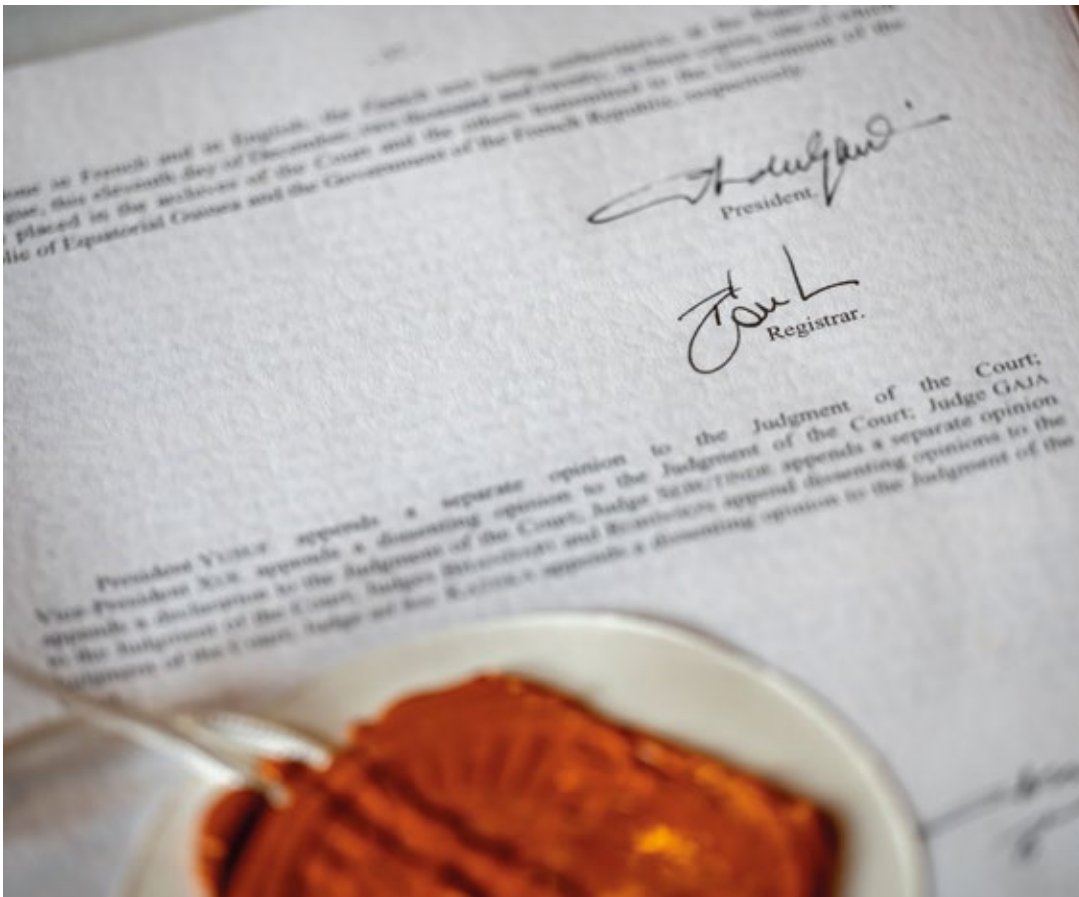 done in French and in English, the French text being authoritative, at the Peace
Hague, this eleventh day of December, two thousand and twenty, in three copies, one of which
placed in the archives of the Court and the others transmitted to the Government of the
lic of Equatorial Guinea and the Government of the French Republic, respectively.
President.
Registrar.
President YUSUF appends a separate opinion to the Judgment of the Court;
Vice-President XUE appends a dissenting opinion to the Judgment of the Court; Judge GAJA
appends a declaration to the Judgment of the Court; Judge SEBUTINDE appends a separate opinion
to the Judgment of the Court; Judges BHANDARI and ROBINSON append dissenting opinions to the
Judgment of the Court; Judge ad hoc KATEKA appends a dissenting opinion to the Judgment of the